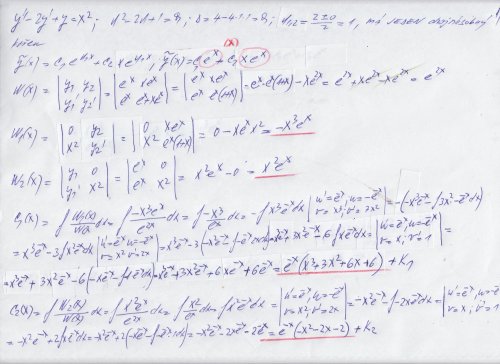 y''-2y'+y=x²; λ²-2λ+1=0; D=4-4·1·1=0; λ₁,₂=(2±0)/2=1, má JEDEN dvojnásobný
kořen
ỹ(x)=c₁e^(λ₁x)+c₂xe^(λ₁x), ỹ(x)=c₁e^x+c₂xe^x (x)
W(x)=|y₁ y₂; y₁' y₂'|=|e^x xe^x; e^x e^x+xe^x|=|e^x xe^x; e^x e^x(1+x)|=e^x·e^x(1+x)-xe^(2x)=e^(2x)+xe^(2x)-xe^(2x)=e^(2x)
W₁(x)=|0 y₂; x² y₂'|=|0 xe^x; x² e^x(1+x)|=0-xe^x x²=-x³e^x
W₂(x)=|y₁ 0; y₁' x²|=|e^x 0; e^x x²|=x²e^x-0=x²e^x
C₁(x)=∫W₁(x)/W(x)dx=∫-x³e^x/e^(2x)dx=∫-x³/e^x dx=-∫x³e^(-x)dx|u'=e^(-x), u=-e^(-x); v=x³, v'=3x²|=-(-x³e^(-x)-∫3x²-e^(-x)dx)
=x³e^(-x)-3∫x²-e^(-x)dx|u'=e^(-x), u=-e^(-x); v=x², v'=2x|=x³e^(-x)+3x²e^(-x)-6∫xe^(-x)dx=|u'=e^(-x), u=-e^(-x); v=x, v'=1|=
=x³e^(-x)+3x²e^(-x)-6(-xe^(-x)-∫-e^(-x)dx)=x³e^(-x)+3x²e^(-x)+6xe^(-x)+6e^(-x)=e^(-x)(x³+3x²+6x+6)+K₁
C₂(x)=∫W₂(x)/W(x)dx=∫x²e^x/e^(2x)dx=∫x²/e^x dx=∫x²e^(-x)dx=|u'=e^(-x), u=-e^(-x); v=x², v'=2x|=-x²e^(-x)-∫-2xe^(-x)dx=|u'=e^(-x), u=-e^(-x); v=x, v'=1|
=-x²e^(-x)+2∫xe^(-x)dx=-x²e^(-x)+2(-xe^(-x)-∫-e^(-x)dx)=-x²e^(-x)-2xe^(-x)-2e^(-x)=e^(-x)(-x²-2x-2)+K₂